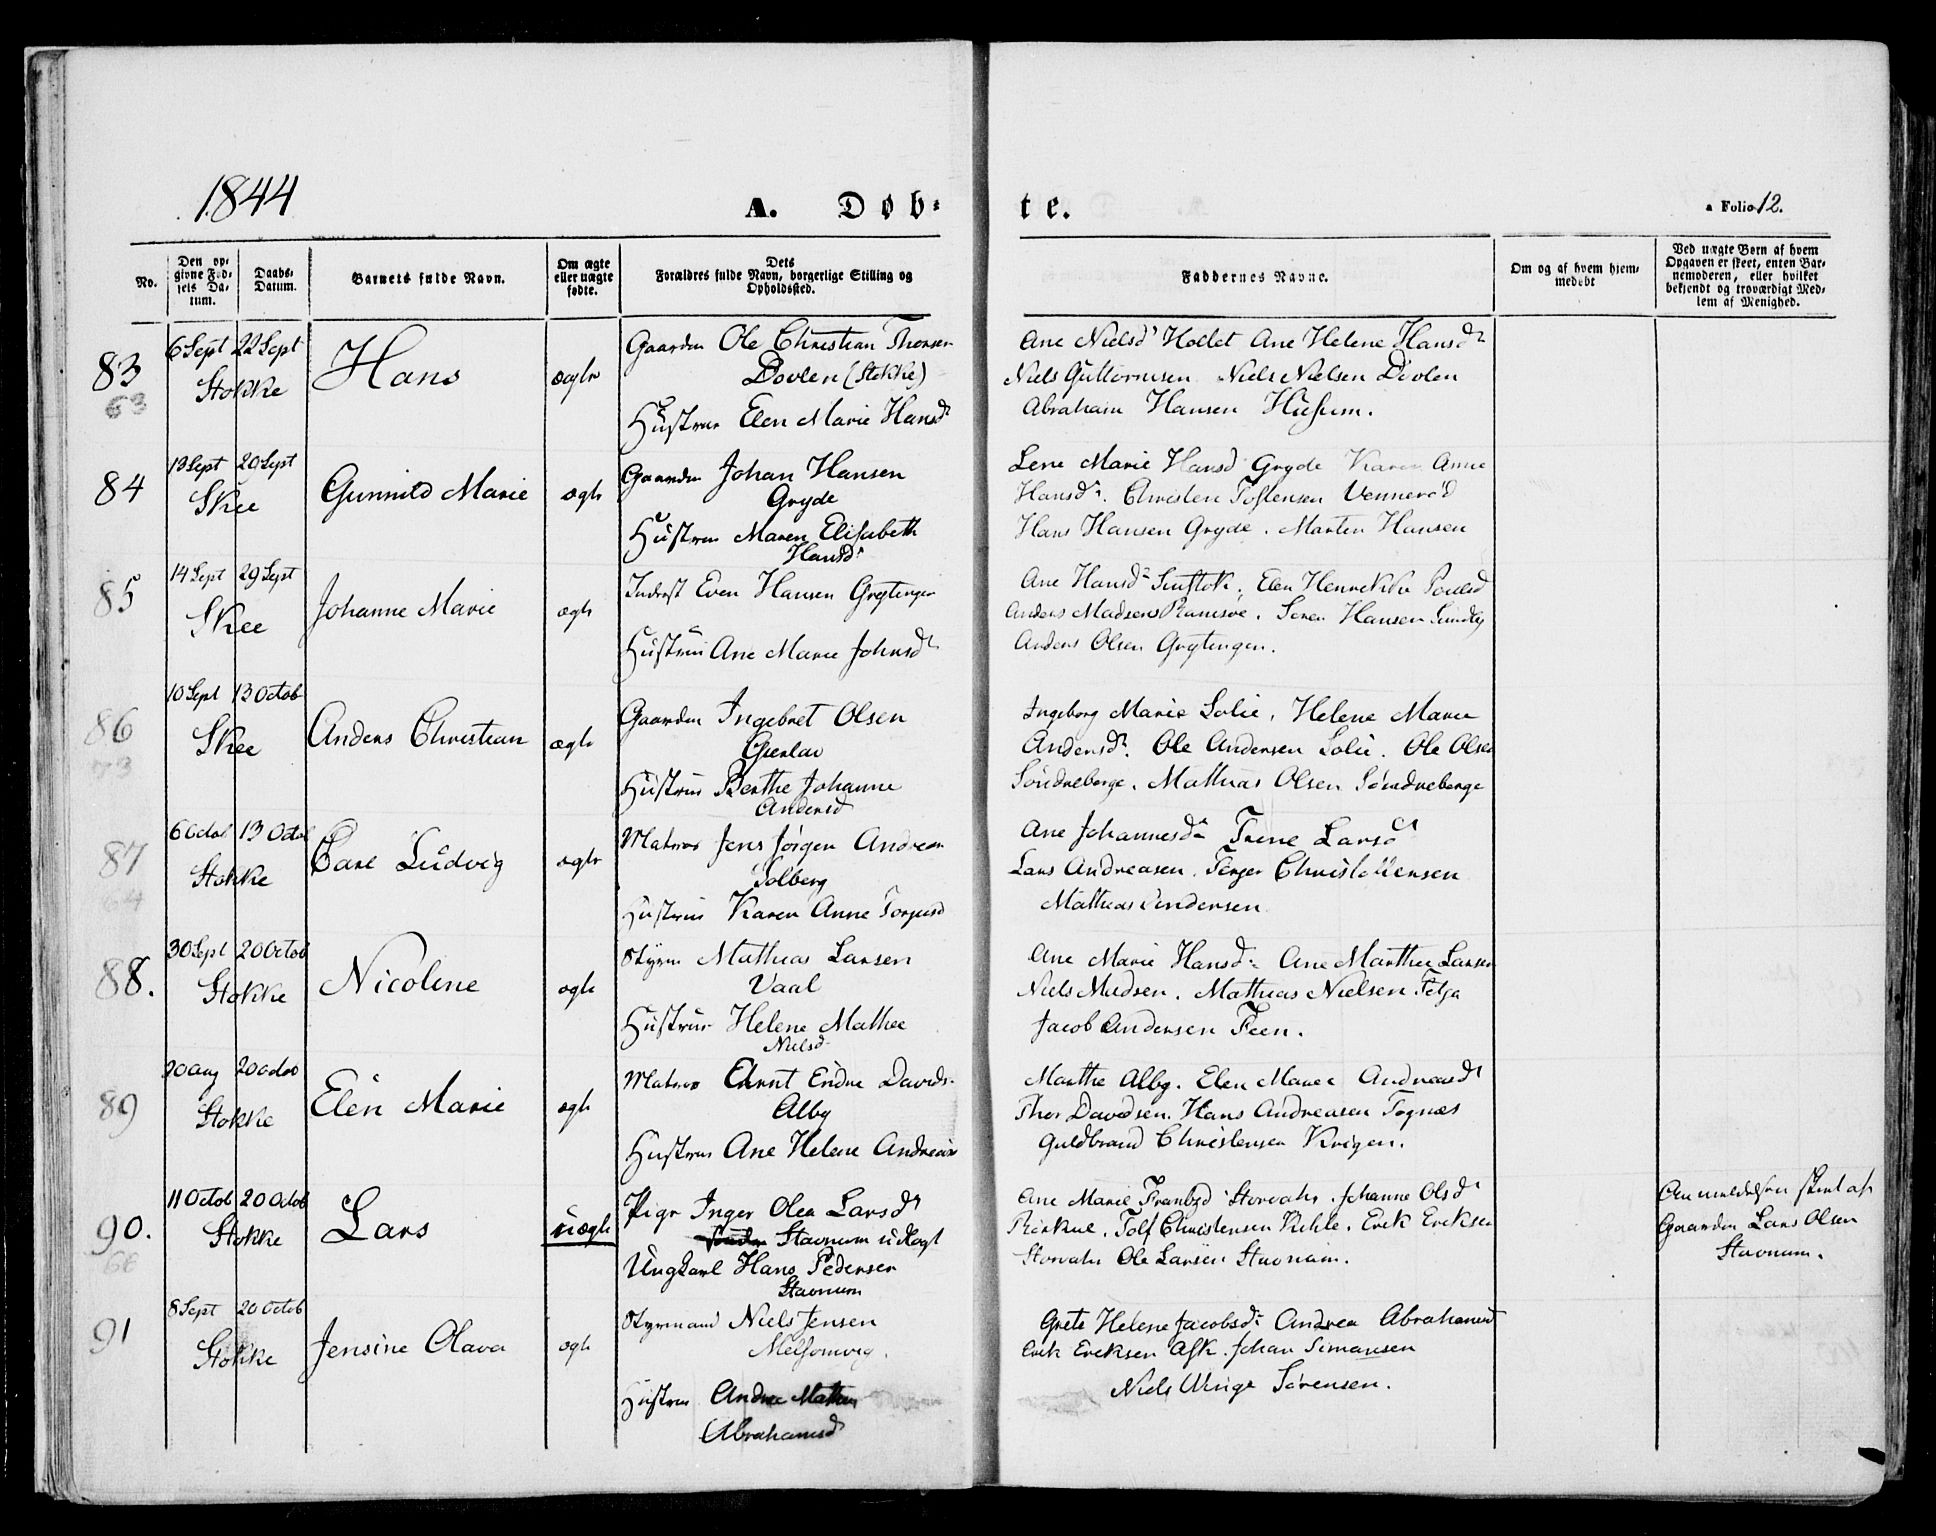 1844
A. Døb-
te.
a Folio 12.
No.
Den op-
givne Fød-
sels Da-
tum.
Daabs-
Datum.
Barnets fulde Navn.
Om ægte
eller uægte
fødte.
Dets
Forældres fulde Navn, borgerlige Stilling og
Opholdssted.
Faddernes Navne.
Om og af hvem hjem-
medøbt
Ved uægte Børn af hvem
Opgaven er skeet, enten Bar-
nemoderen, eller hvilket
bekjendt og troværdigt Med-
lem af Menighed.
83
63
6 Sept 22 Sept
Stokke
Hans
ægte
Gaardm Ole Christian Thorsen
Dovlen (Stokke)
Hustrue Elen Marie Hansd
Ane Nielsd Holtet Ane Helene Hansd
Niels Guttormsen Niels Nielsen Dovlen
Abraham Hansen Husum.
84
13 Sept 29 Sept
Skee
Gunnild Marie
ægte
Gaardm Johan Hansen
Gryde
Hustrue Maren Elisabeth
Hansd
Lene Marie Hansd Gryde Karen Anne
Hansd. Christen Toftensen Vennerød
Hans Hansen Gryde. Marten Hansen
85
14 Sept 29 Sept
Skee
Johanne Marie
ægte
Inderst Even Hansen Grytingen
Hustrue Ane Marie Johnsd
Ane Hansd Elen Henrekke Poulsd
Anders Madsen Ramsøe. Soren Hansen Sundby
Anders Olsen Grytingen.
86
73
10 Sept 13 Octob
Skee
Anders Christian
ægte
Gaardm Ingebret Olsen
Gierlau
Hustrue Berthe Johanne
Andersd
Ingeborg Marie Solie, Helene Marie
Andersd. Ole Andersen Solie. Ole Olsen
Søndreberge. Mathias Olsen Søndreberge
87
64
6 Octob 13 Octob
Stokke
Carl Ludvig
ægte
Matros Jens Jørgen Andreas
Solberg
Hustrue Karen Anne Torjusd
Ane Johannesd Trine Larsd
Lars Andreasen. Terger Christoffersen
Mathias Andersen
88.
30 Sept 20 Octob
Stokke
Nicoline
ægte
Styrm Mathias Larsen
Vaal
Hustrue Helene Mathee
Nielsd
Ane Marie Hansd Ane Marthee Larsen
Niels Madsen. Mathias Nielsen
Jacob Andersen Feen.
89
20 Aug 20 Octob
Stokke
Elen Marie
ægte
Matros Ernt Endre Davids
Alby
Hustrue Ane Helene Andreas
Marthe Alby. Elen Marie Andreasd
Thor Davidsen. Hans Andreasen Tognæs
Guldbrand Christensen Krigen.
90.
66
11 Octob 20 Octob
Stokke
Lars
uægte
Pige Inger Olea Larsd
Stavnum udlagt
Ungkarl Hans Pedersen
Stavnum
Ane Marie Frantzd Storvahr. Johanne Olsd
Tolf Christensen Kihle. Erek Ereksen
Storvahr Ole Larsen Stavnum.
Anmeldelsen skeet af
Gaardm Lars Olsen
Stavnum.
91
8 Sept 20 Octob
Stokke
Jensine Olava
ægte
Styrmand Niels Jensen
Melsomvig.
Hustrue Andrea Mathea
Abrahamsd
Grete Helene Jacobsd Andrea Abrahamsd
Erek Ereksen Ask. Johan Simonsen
Niels Sørensen.